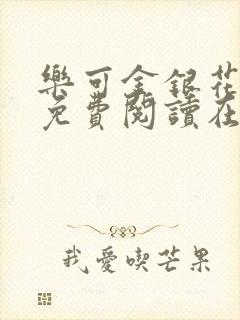 樂可金銀花
免費閱讀在
我愛喫芒果